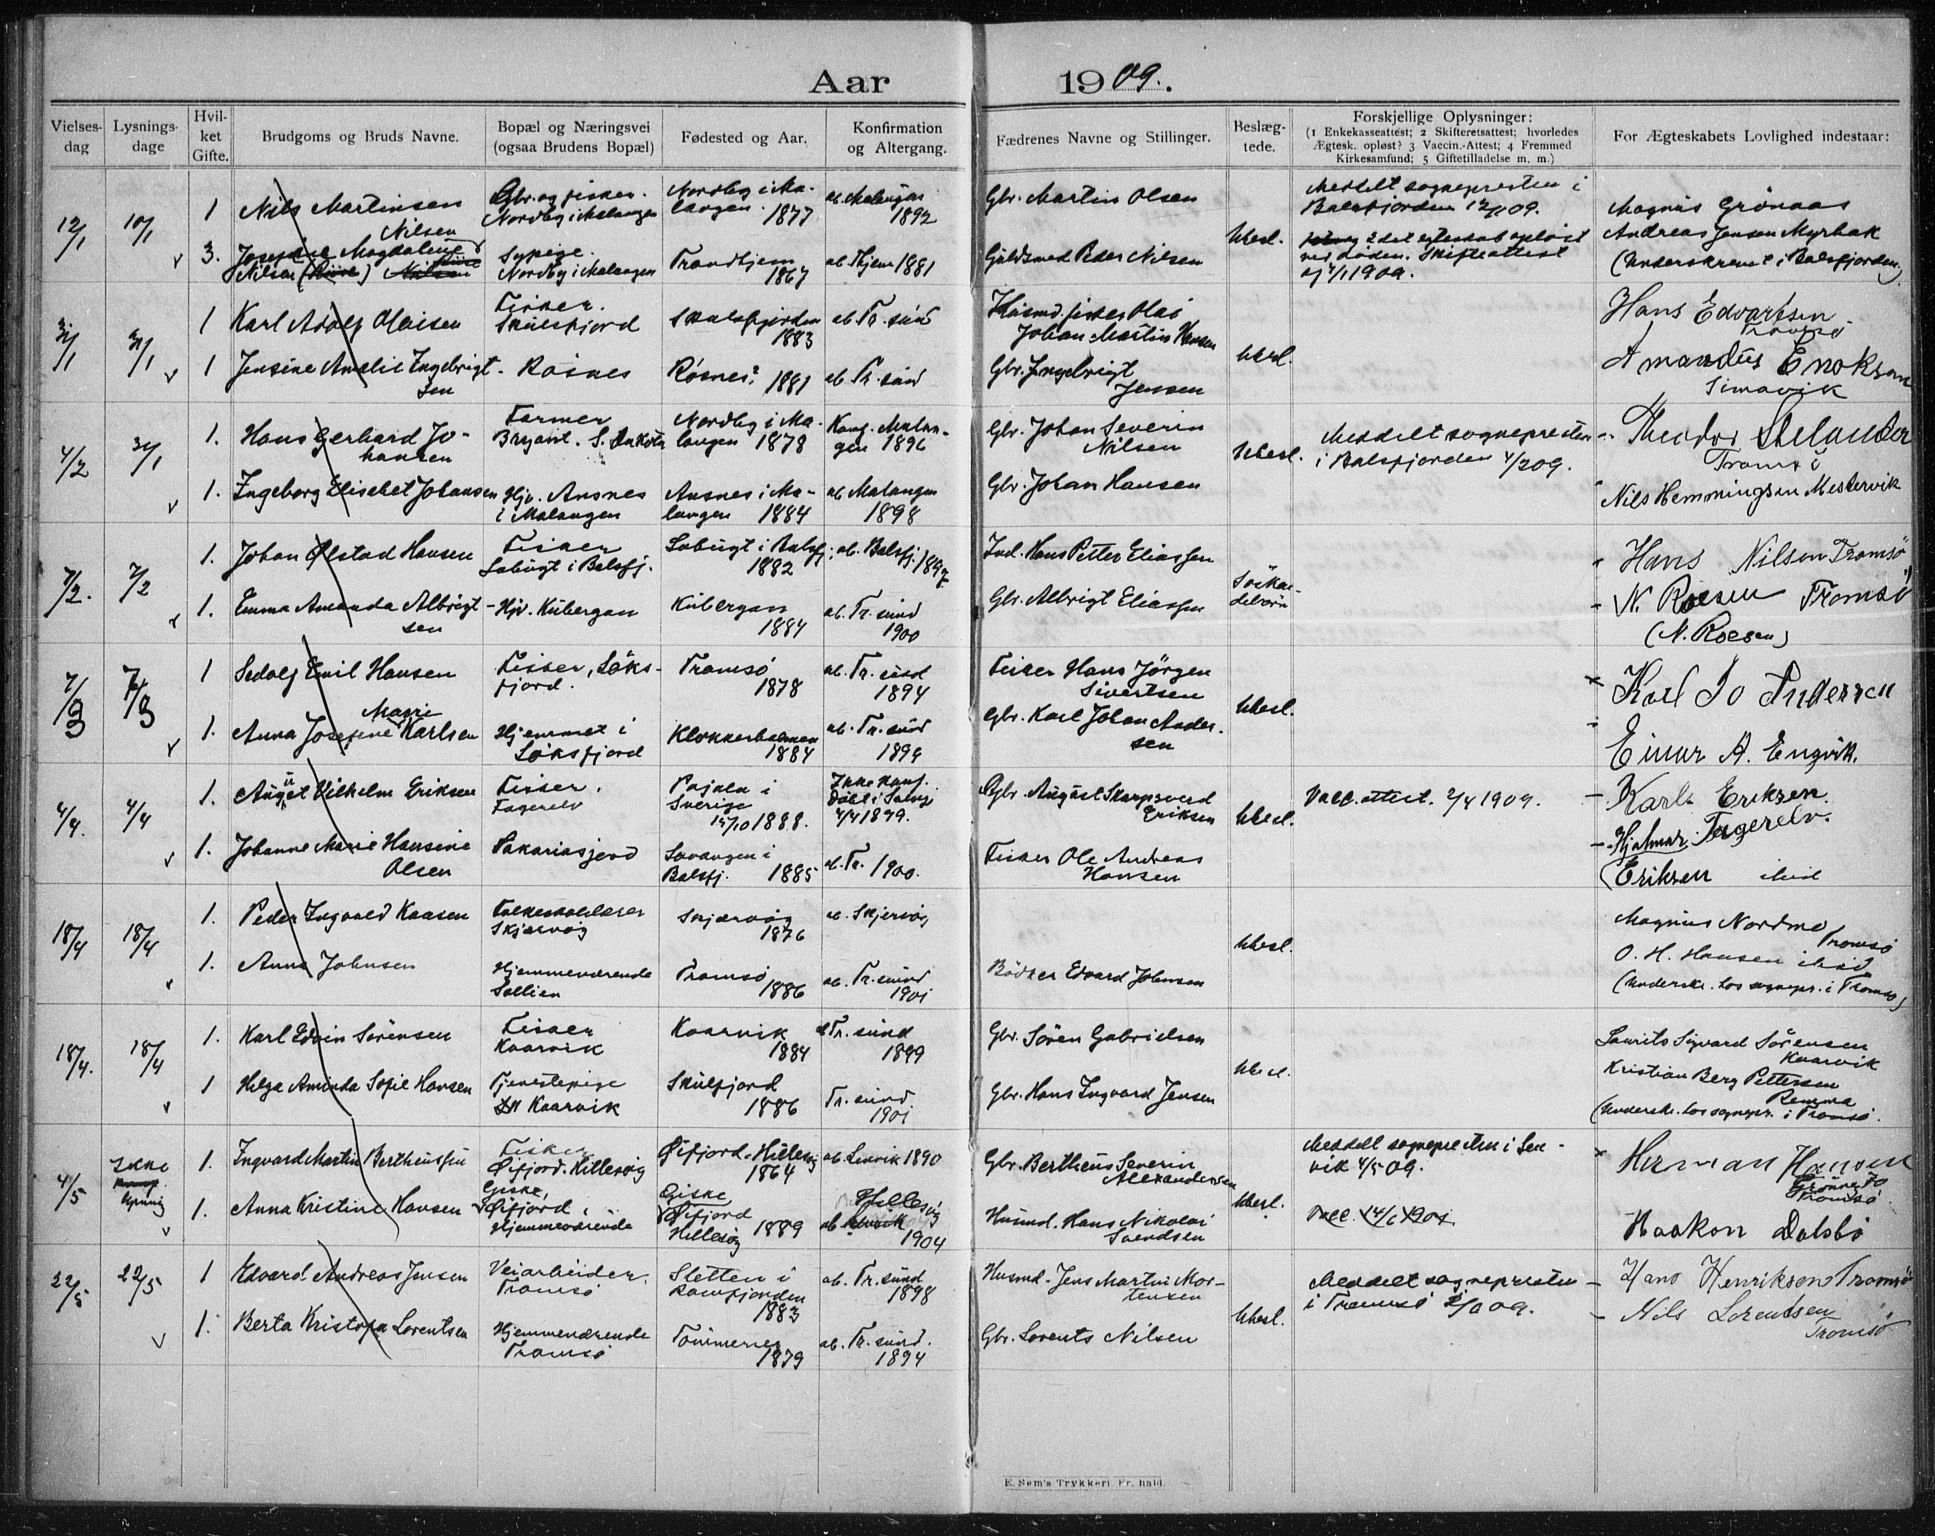 Aar 1909.
Vielses-
dag
Lysnings-
dage
Hvil-
ket
Gifte.
Brudgoms og Bruds Navne.
Bopæl og Næringsvei
(ogsaa Brudens Bopæl)
Fødested og Aar.
Konfirmation
og Altergang.
Fædrenes Navne og Stillinger.
Beslæg-
tede.
Forskjellige Oplysninger:
(1 Enkekasseattest; 2 Skifteretsattest; hvorledes
Ægtesk. opløst? 3 Vaccin.-Attest; 4 Fremmed
Kirkesamfund; 5 Giftetilladelse m. m.)
For Ægteskabets Lovlighed indestaar:
12/1
10/1
1
Nils Martinsen
Gbr. og fisker.
Nordby i Malangen
Nordby i Ma-
langen. 1877
ab Malangen
1892
Gbr. Martin Olsen
Ubesl.
Meddelt sognepresten i
Balsfjorden 12/1 09.
Magnus Grønaas
Andreas Jensen Myrbak
(Underskrevet i Balsfjorden)
3.
Nilsen
Josefine Magdalene
Nilsen
Sypige.
Nordby i Malangen
Trondhjem
1867
ab Thjem 1881
Guldsmed Peder Nilsen
2 det egteskab opløst
ved døden. Skifteattest
1909.
31/1
31/1
1
Karl Adolf Olaisen
Fisker.
Skulsfjord
Skulsfjorden
1883
ab Tr. sund
Husmd. fisker Olai
Johan Martin Hansen
Ubesl.
Hans Edvartsen
Tromsø
1
Jensine Amalie Ingebrigt-
sen
Røsnes
Røsnes? 1881
ab Tr. sund
Gbr. Ingebrigt
Jensen
Amandus Enoksen
Simavik
4/2
31/1
1.
Hans Gerhard Jo-
hansen
Farmer
Bryant. S. Dakota
Nordby i Ma-
langen 1878
Konf. Malan-
gen 1896
Gbr. Johan Severin
Nilsen
Ubesl.
Meddelt sognepresten
i Balsfjorden 4/2 09.
Theodor
Tromsø
1.
Ingeborg Elisebet Johansen
Hjv. Ansnes
i Malangen
Ansnes i Ma-
langen 1884
ab Malangen
1898
Gbr. Johan Hansen
Nils Hemmingsen Mestervik
7/2.
7/2
1.
Johan Ølstad Hansen
Fisker
Sabugt i Balsfj.
Sabugt i Balsfj.
1882
ab. Balsfj. 1897
Ind. Hans Petter Eliassen
Søsken-
debørn
Hans Nilsen Tromsø
1.
Emma Amanda Albrigt-
sen
Hjv. Kubergan
Kubergan
1884
ab. Tr. sund
1900
Gbr. Albrigt Eliassen
N. Roesen Tromsø
(N. Roesen)
7/3
7/3
1
Sedolf Emil Hansen
Fisker, Løks-
fjord.
Tromsø
1878
ab. Tr. sund
1894
Fisker Hans Jørgen
Sivertsen
Ubesl.
Karl Jo Andersen
1.
Marie
Anna Josefine Karlsen
Hjemmet i
Løksfjord
1884
ab. Tr. sund
Gbr. Karl Johan Ander-
sen
Einar A. Engvik.
4/4.
4/4
1.
August Vilhelm Eriksen
Fisker.
Fagerelv
Pajala i
Sverige
1888.
Ikke konf.
Gbr. August Skarpsverd
Eriksen
Ubesl.
Vacc. attest. 2/4 1909.
Karl Eriksen.
Fagerelv.
1.
Johanne Marie Hansine
Olsen
Sakariasjord
Savangen i
Balsfj. 1885
ab. Tr. 1900.
Fisker Ole Andreas
Hansen
Hjalmar
Eriksen ibid
18/4
18/4
1.
Peder Ingvald Kaasen
Folkeskolelærer
Skjærvøy
Skjærvøy
1876
ab. Skjervøy
Ubesl.
Magnus Nordmo
Tromsø
1.
Anna Johnsen
Hjemmeværende
Sollien
Tromsø
1886
ab. Tr. sund
1901
Bødker Edvard Johnsen
O. H. Hansen ibid
(Underskr. hos sognepr. i Tromsø)
18/4.
18/4
1.
Karl Edvin Sørensen
Fisker
Kaarvik
Kaarvik
1884
Tr. sund
1899
Gbr. Søren Gabrielsen
Ubesl.
Laurits Sigvard Sørensen
Kaarvik
1
Helga Aminda Sofie Hansen
Tjenestepige
Kaarvik
Skulfjord
1886
Tr. sund
1901
Gbr. Hans Ingvard Jensen
Kristian Berg Pettersen
Remma
(Underskr. hos sognepr. i Tromsø.
4/5
Ikke
lysning
1.
Ingvard Martin Bertheussen
Fisker
Øifjord. Hillesøy
Øifjord. Hillesøy
1864
ab Lenvik 1890
Gbr. Bertheus Severin
Alexandersen
Ubesl.
Meddelt sognepresten i Len-
vik 4/5 09.
Herman Hansen
Tromsø
1.
Anna Kristine Hansen
Giske,
Øifjord,
Hjemmeværende
Giske
Øifjord
Hillesøy 1889
Hillesøy
ab 1904
Husmd. Hans Nikolai
Svendsen
Haakon Dalsbø
22/5
22/5
1
Edvard Andreas Jensen
Veiarbeider.
Tromsø
Sletten i
Ramfjorden
1883
ab. Tr. sund
1898
Husmd. Jens Martin Mor-
tensen
Ubesl.
Meddelt sognepresten
i Tromsø
Hans Henriksen Tromsø
1.
Berta Kristofa Lorentsen
Hjemmeværende
Tromsø
Tømmernes
1879
ab. Tr. sund.
1894
Gbr. Lorents Nilsen
Nils Lorentsen
Tromsø
E. Sem's Trykkeri. Fr. hald.